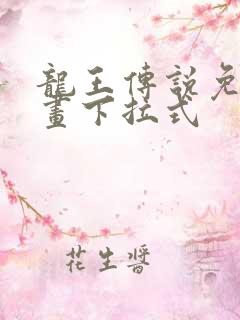 龍王傳說免
畫下拉式
花生醬